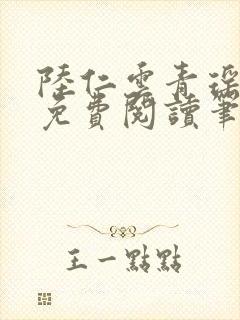 陸仁雲青瑶
免費閱讀筆
王一點點